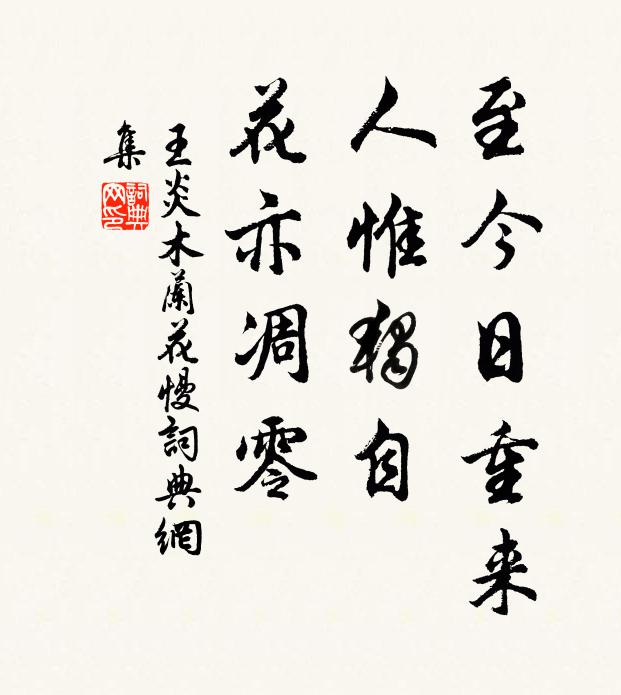 至今日重来
人惟獨自
花亦凋零
王炎木蘭花慢詞典網
集
詞典
网印